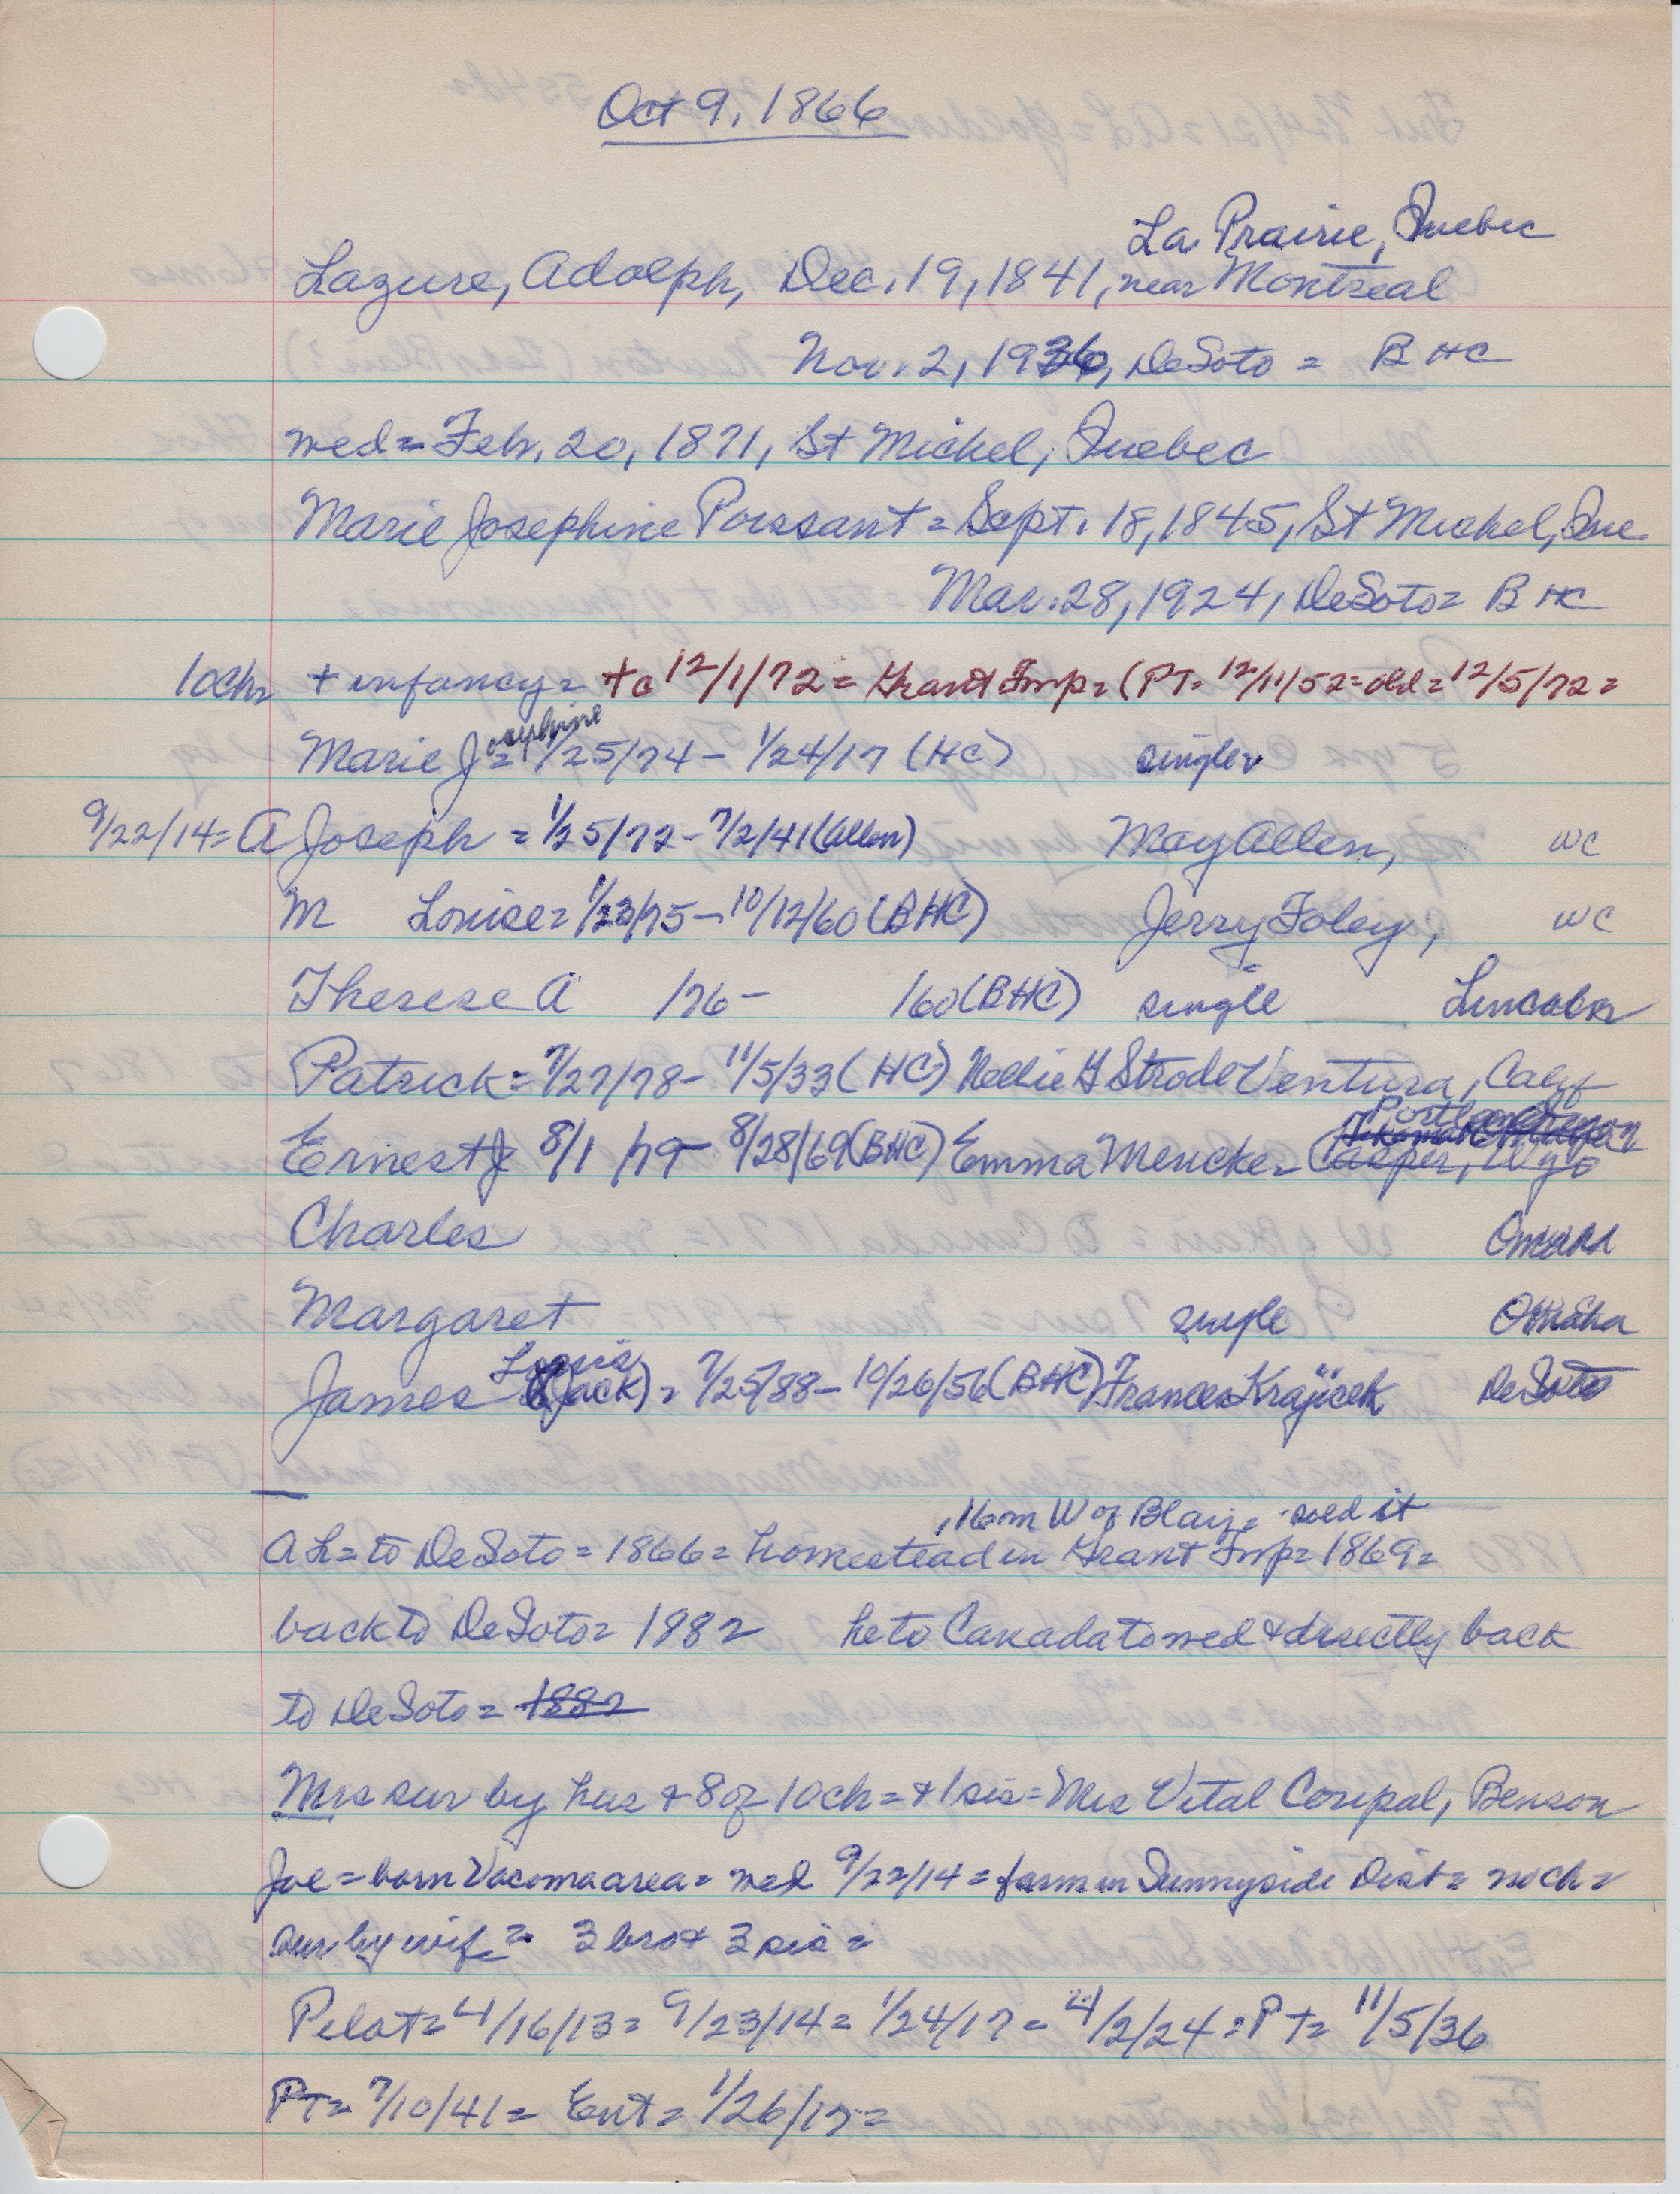 Oct 9, 1866
La Prairie, Quebec
Lazure, Adolph, Dec. 19, 1841, near Montreal
Nov. 2, 1936, DeSoto = B HC
wed = Feb. 20, 1871, St Michel, Quebec
Marie Josephine Poissant = Sept. 18, 1845, St Michel, Que
Mar. 28, 1924, DeSoto = B HC
10 ch = + infancy = + c 12/1/72 = Grant Twp = (PT = 12/11/52 = old = 12/5/72 =
Marie Josephine = 1/25/74 - 1/24/17 (HC) single
9/22/14 = A Joseph = 1/25/72 - 7/2/41 (Allen) May Allen, WC
M Louise = 1/23/75 - 10/12/60 (BHC) Jerry Foley, WC
Therese A /76 - /60 (BHC) single Lincoln
Patrick = 7/27/78 - 11/5/33 (HC) Nellie G Strode Ventura, Calif
Portland Oregon
Ernest J 8/1/79 - 8/28/69 (BHC) Emma Mencke = Casper, Wyo
Charles Omaha
Margaret single Omaha
Louis
James (Jack) = 7/25/88 - 10/26/56 (BHC) Frances Krajicek DeSoto
, 16 m W of Blair = sold it
AL = to DeSoto = 1866 = homestead in Grant Twp = 1869 =
back to DeSoto = 1882 he to Canada to wed & directly back
to DeSoto = 1882
Mrs sur by hus & 8 of 10 ch = & 1 sis = Mrs Vital Coupal, Benson
Joe = born Vacoma area = wed 9/22/14 = farm in Sunnyside Dist = no ch =
sur by wife = 3 bro & 3 sis =
Pilot = 4/16/13 = 9/23/14 = 1/24/17 = 4/2/24 = PT = 11/5/36
PT = 7/10/41 = Ent = 1/26/17 =